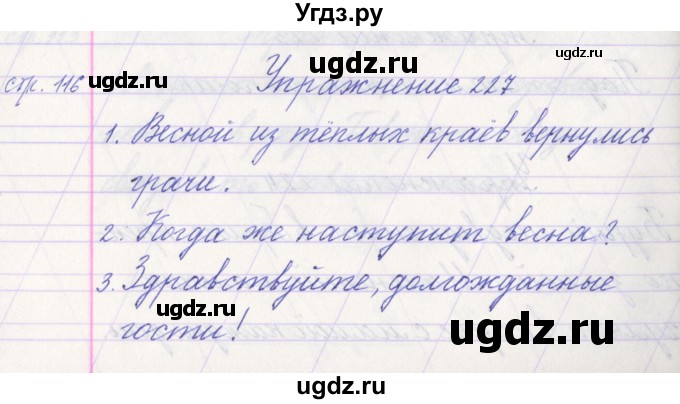 Угдз.ру
стр. 116 Упражнение 227
ugdz.ru ugdz.ru
1. Весной из тёплых краёв вернулись
грачи.
ugdz.ru ugdz.ru
2. Когда же наступит весна?
3. Здравствуйте, долгожданные
гости!
ugdz.ru ugdz.ru
ugdz.ru